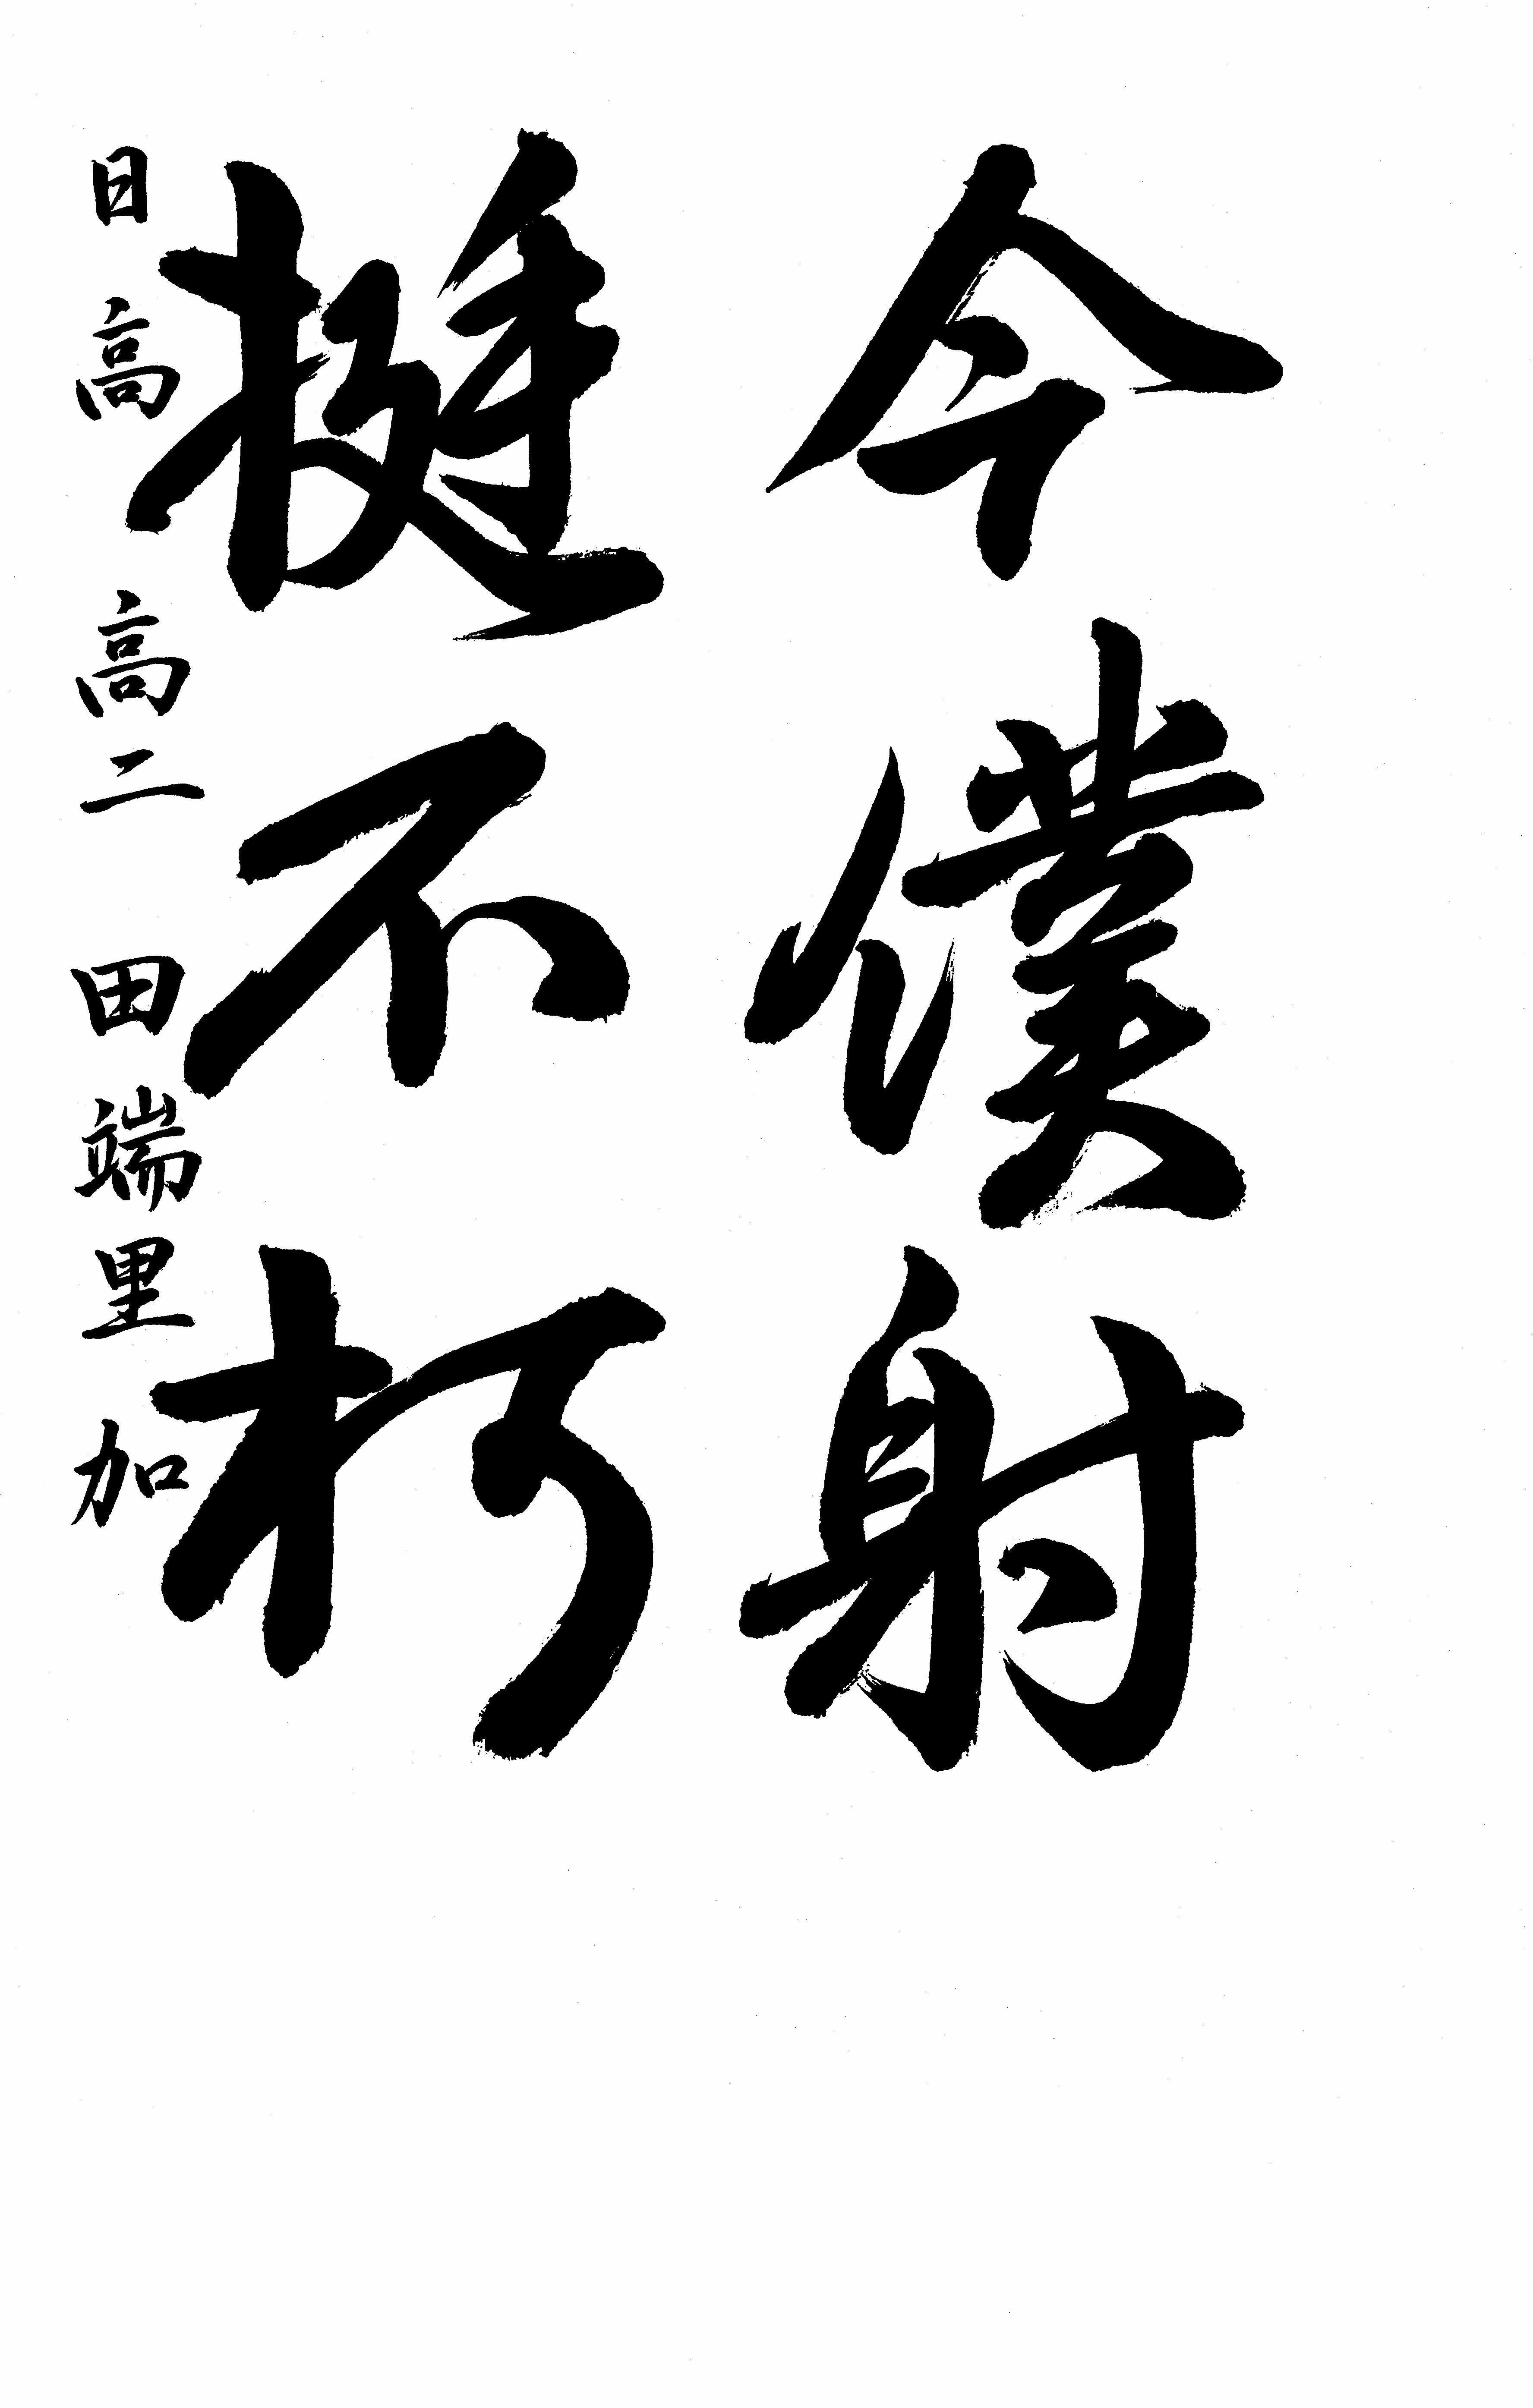 今僕射
挺不朽
日高 高二 田端里加